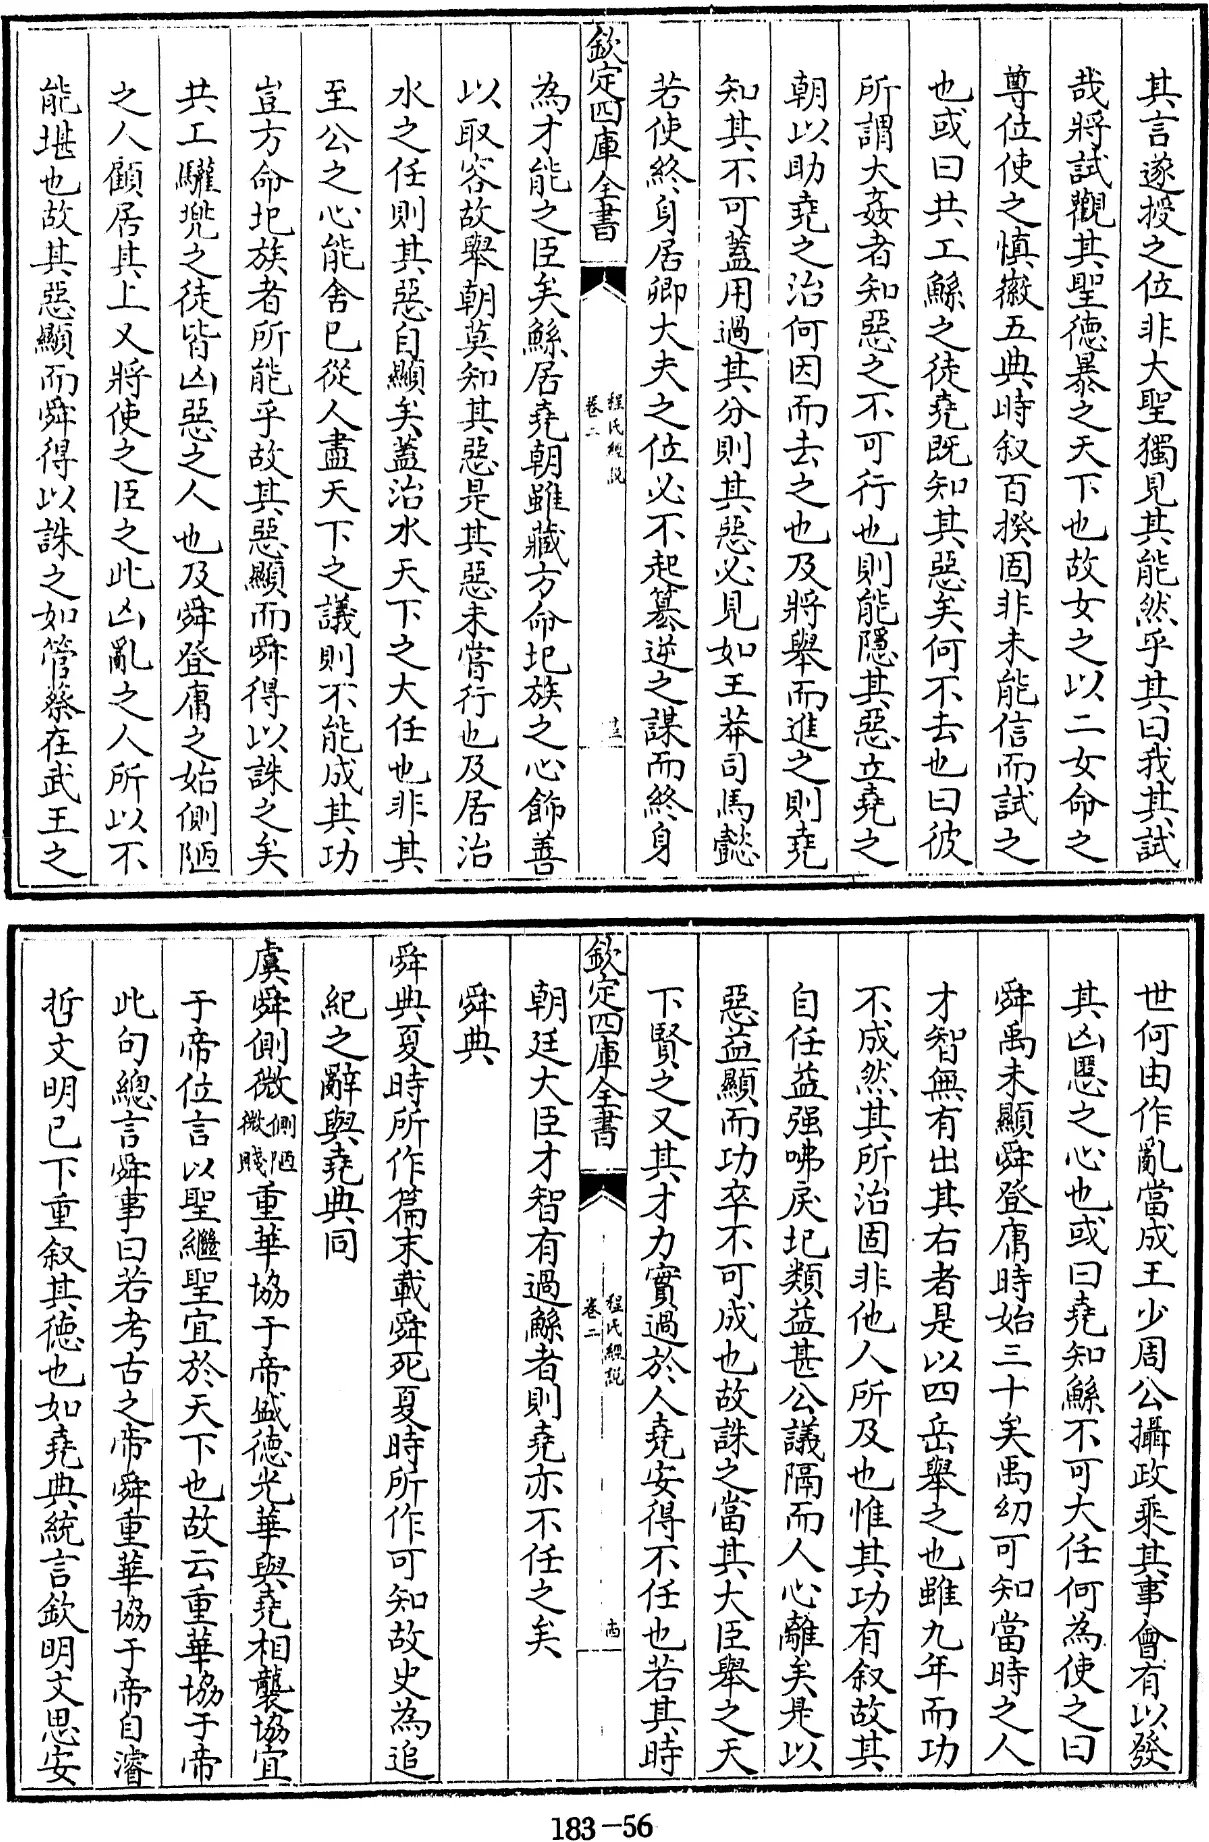 其言遂授之位非大聖獨見其能然乎其曰我其試
哉將試觀其聖德暴之天下也故女之以二女命之
尊位使之慎徽五典時叙百揆固非未能信而試之
也或曰共工鯀之徒堯既知其惡矣何不去也曰彼
所謂大姦者知惡之不可行也則能隱其惡立堯之
朝以助堯之治何因而去之也及將舉而進之則堯
知其不可蓋用過其分則其惡必見如王莽司馬懿
若使終身居卿大夫之位必不起簒逆之謀而終身
欽定四庫全書
程氏經說
卷二
十三
為才能之臣矣鯀居堯朝雖藏方命圯族之心飾善
以取容故舉朝莫知其惡是其惡未嘗行也及居治
水之任則其惡自顯矣蓋治水天下之大任也非其
至公之心能舍已從人盡天下之議則不能成其功
豈方命圯族者所能乎故其惡顯而舜得以誅之矣
共工驩兜之徒皆凶惡之人也及舜登庸之始側陋
之人顧居其上又將使之臣之此凶亂之人所以不
能堪也故其惡顯而舜得以誅之如管蔡在武王之
世何由作亂當成王少周公攝政乘其事會有以發
其凶慝之心也或曰堯知鯀不可大任何為使之曰
舜禹未顯舜登庸時始三十矣禹幼可知當時之人
才智無有出其右者是以四岳舉之也雖九年而功
不成然其所治固非他人所及也惟其功有叙故其
自任益强咈戾圯類益甚公議隔而人心離矣是以
惡益顯而功卒不可成也故誅之當其大臣舉之天
下賢之又其才力實過於人堯安得不任也若其時
欽定四庫全書
程氏經說
卷二
十四
朝廷大臣才智有過鯀者則堯亦不任之矣
舜典
舜典夏時所作篇末載舜死夏時所作可知故史為追
紀之辭與堯典同
虞舜側微側陋微賤重華協于帝盛德光華與堯相襲協宜
于帝位言以聖繼聖宜於天下也故云重華協于帝
此句總言舜事曰若考古之帝舜重華協于帝自濬
哲文明已下重叙其德也如堯典統言欽明文思安
183-56